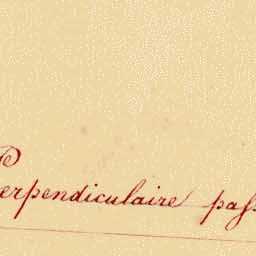 Perpendiculaire pass